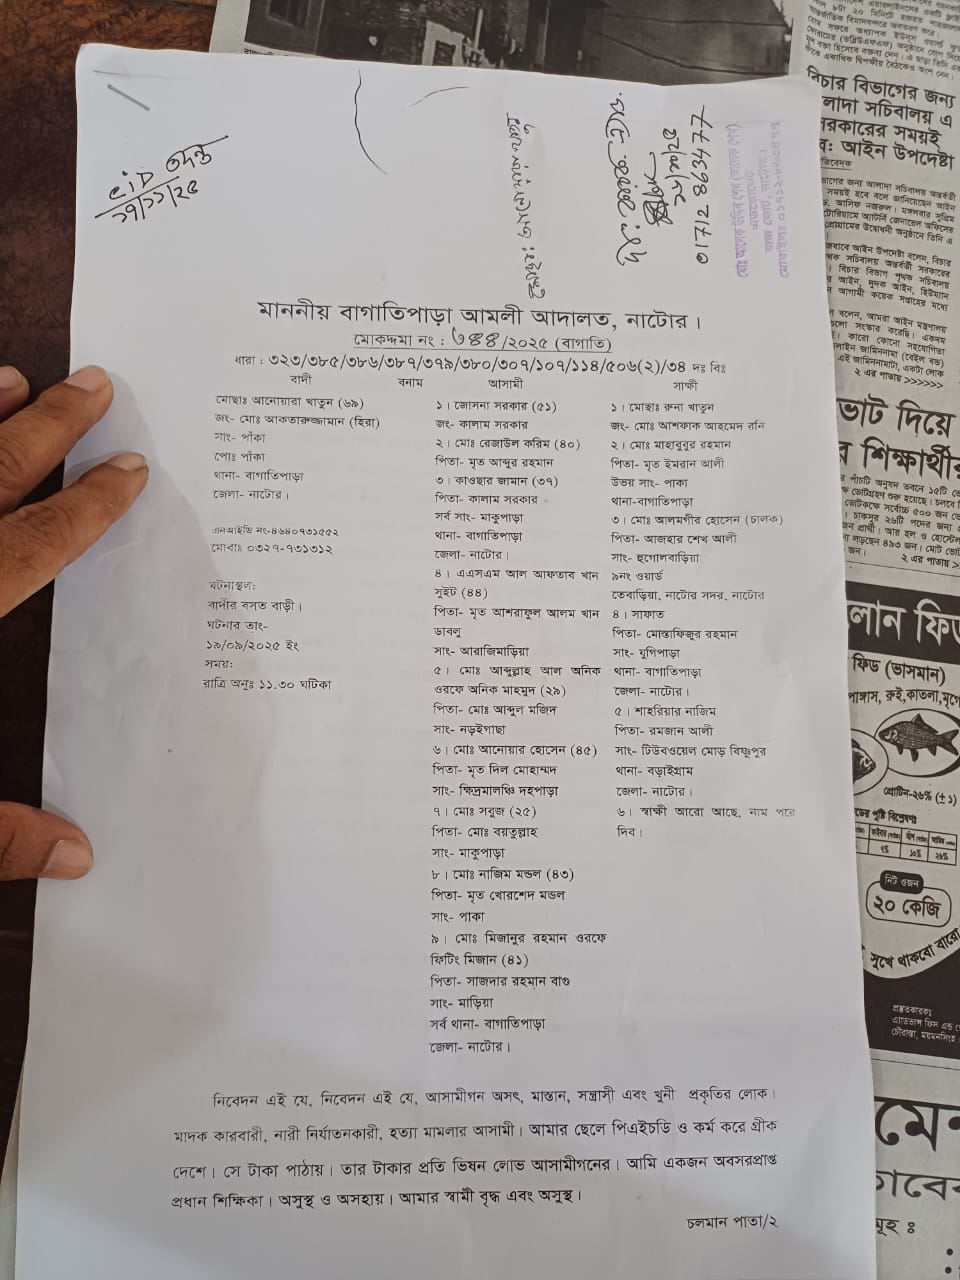 CID তদন্ত
01712863477
মাননীয় বাগাতিপাড়া আমলী আদালত, নাটোর।
মোকদমা নং : ৩৪৪/২০২৫ (বাগাতি)
ধারা : ৩২৩/৩৮৫/৩৮৬/৩৮৭/৩৭৯/৩৮০/৩০৭/১০৭/১১৪/৫০৬(২)/৩৪ দঃ বিঃ
বাদী বনাম আসামী সাক্ষী
মোছাঃ আনোয়ারা খাতুন (৬৯)
জং- মোঃ আকতারুজ্জামান (হিরা)
সাং- পাঁকা
পোঃ পাঁকা
থানা- বাগাতিপাড়া
জেলা- নাটোর।
এনআইডি নং-৪৬৪০৭৩১৫৫২
মোবাঃ ০৩২৭-৭৩১৩১২
ঘটনাস্থল:
বাদীর বসত বাড়ী।
ঘটনার তাং-
১৯/০৯/২০২৫ ইং
সময়:
রাত্রি অনুঃ ১১.৩০ ঘটিকা
১। জোসনা সরকার (৫১)
জং- কালাম সরকার
২। মোঃ রেজাউল করিম (৪০)
পিতা- মৃত আব্দুর রহমান
৩। কাওছার জামান (৩৭)
পিতা- কালাম সরকার
সর্ব সাং- মাকুপাড়া
থানা- বাগাতিপাড়া
জেলা- নাটোর।
৪। এএসএম আল আফতাব খান
সুইট (৪৪)
পিতা- মৃত আশরাফুল আলম খান
ডাবলু
সাং- আরাজিমাড়িয়া
৫। মোঃ আব্দুল্লাহ আল অনিক
ওরফে অনিক মাহমুদ (২৯)
পিতা- মোঃ আব্দুল মজিদ
সাং- নড়ইগাছা
৬। মোঃ আনোয়ার হোসেন (৪৫)
পিতা- মৃত দিল মোহাম্মদ
সাং- ক্ষিদ্রমালঞ্চি দহপাড়া
৭। মোঃ সবুজ (২৫)
পিতা- মোঃ বয়তুল্লাহ
সাং- মাকুপাড়া
৮। মোঃ নাজিম মন্ডল (৪৩)
পিতা- মৃত খোরশেদ মন্ডল
সাং- পাকা
৯। মোঃ মিজানুর রহমান ওরফে
ফিটিং মিজান (৪১)
পিতা- সাজদার রহমান বাগু
সাং- মাড়িয়া
সর্ব থানা- বাগাতিপাড়া
জেলা- নাটোর।
১। মোছাঃ রুনা খাতুন
জং- মোঃ আশফাক আহমেদ রনি
২। মোঃ মাহাবুবুর রহমান
পিতা- মৃত ইমরান আলী
উভয় সাং- পাকা
থানা-বাগাতিপাড়া
৩। মোঃ আলমগীর হোসেন (চালক)
পিতা- আজহার শেখ আলী
সাং- হুগোলবাড়িয়া
৯নং ওয়ার্ড
তেবাড়িয়া, নাটোর সদর, নাটোর
৪। সাফাত
পিতা- মোস্তাফিজুর রহমান
সাং- যুগিপাড়া
থানা- বাগাতিপাড়া
জেলা- নাটোর।
৫। শাহরিয়ার নাজিম
পিতা- রমজান আলী
সাং- টিউবওয়েল মোড় বিষ্ণুপুর
থানা- বড়াইগ্রাম
জেলা- নাটোর।
৬। স্বাক্ষী আরো আছে, নাম পরে
দিব।
নিবেদন এই যে, নিবেদন এই যে, আসামীগন অসৎ, মাস্তান, সন্ত্রাসী এবং খুনী প্রকৃতির লোক।
মাদক কারবারী, নারী নির্যাতনকারী, হত্যা মামলার আসামী। আমার ছেলে পিএইচডি ও কর্ম করে গ্রীক
দেশে। সে টাকা পাঠায়। তার টাকার প্রতি ভিষন লোভ আসামীগনের। আমি একজন অবসরপ্রাপ্ত
প্রধান শিক্ষিকা। অসুস্থ ও অসহায়। আমার স্বামী বৃদ্ধ এবং অসুস্থ।
চলমান পাতা/২
বিচার বিভাগের জন্য
লাদা সচিবালয় এ
রকারের সময়ই
আইন উপদেষ্টা
২ এর পাতায় >>>>>>
ভোট দিয়ে
শিক্ষার্থীর
২ এর পাতায় >
লান ফিড
ফিড (ভাসমান)
পাঙ্গাস, রুই, কাতলা,
প্রোটিন-২৬% (±১)
নিট ওজন
২০ কেজি
সুখে থাকবো বারো